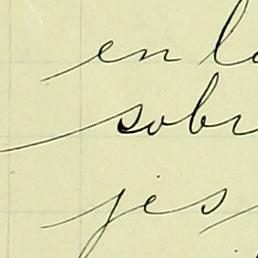 en l
sobr
jes